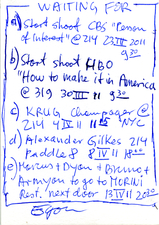 WAITING FOR
a) Start shoot CBS "Person
of Interest" @ 214 23 III 2011
9 30
b) Start shoot HBO
"How to make it in America
@ 319 30 III 11 9 30
c) KRUG Champagne @
214 4 IV 11 NYC
d) Alexander Gilkes 214
Paddle 8 8 IV 11 18
e) Marcus + Dyan + Bruno +
Armyan to go to MORINI
Rest. next door 13 IV 11 20 30